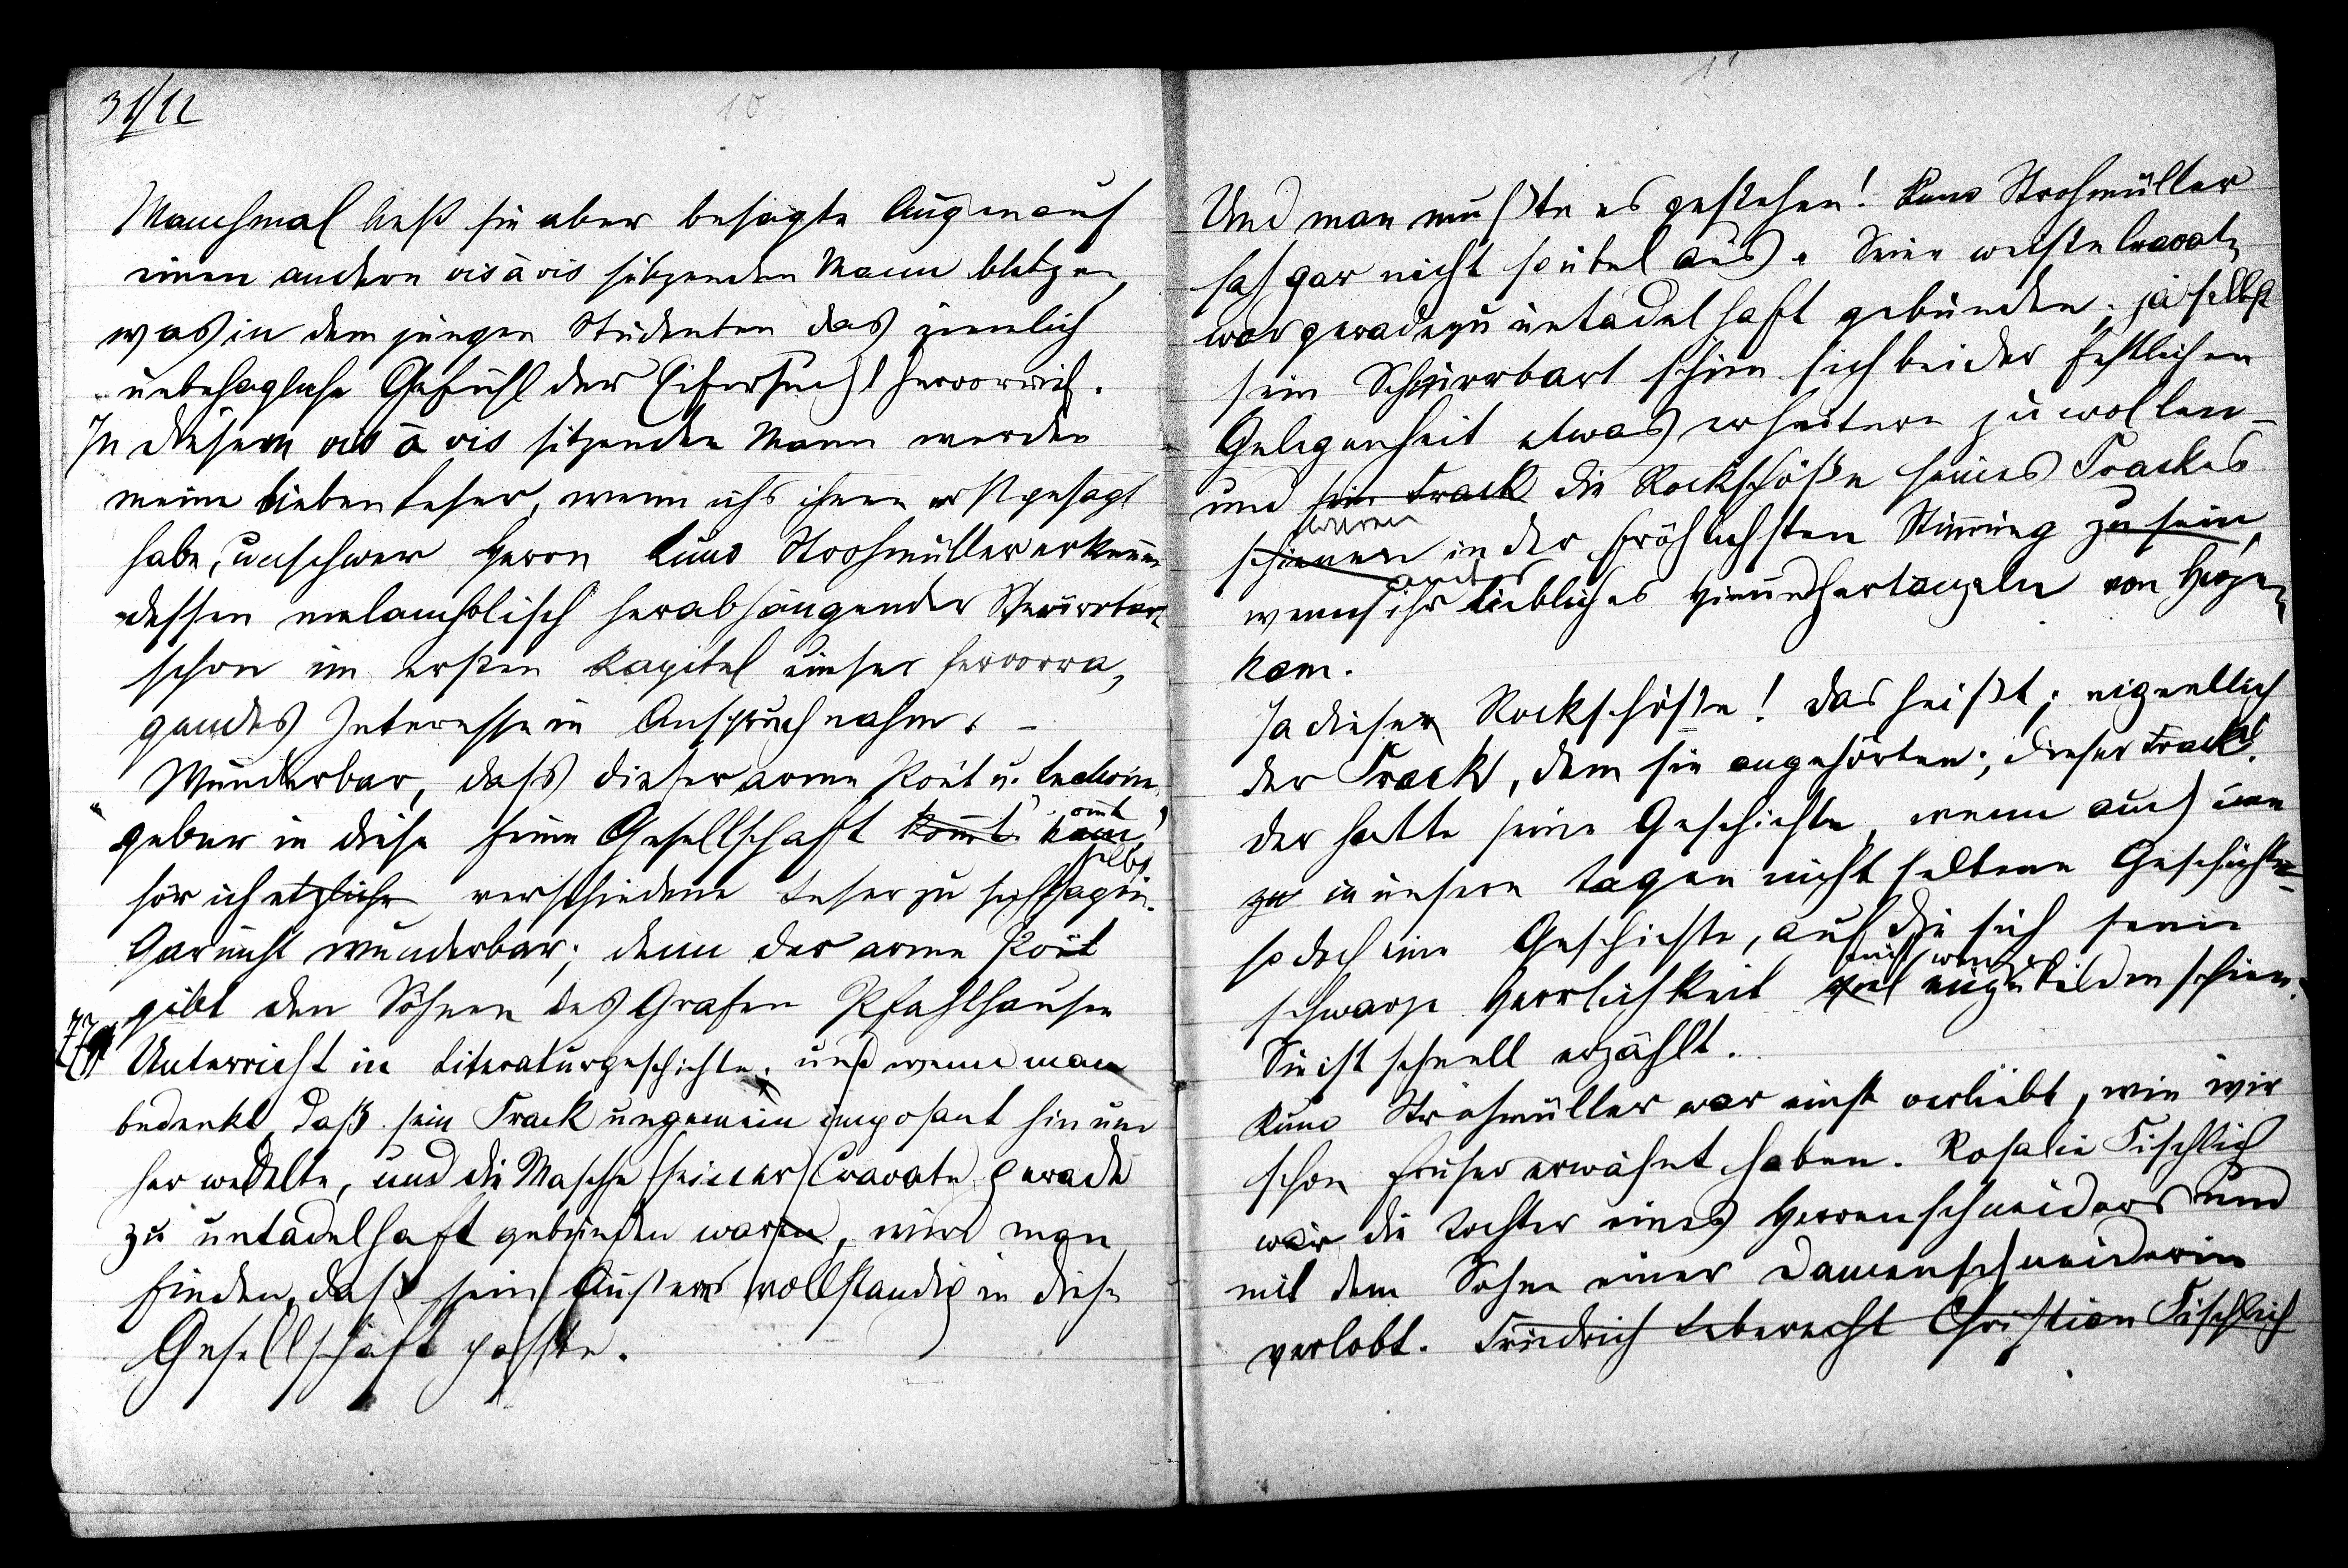 31/12
10
Manchmal ließ sie aber besagte Augen auf
einen andern vis à vis sitzenden Mann blitzen,
was in dem jungen Studenten das ziemlich
unbehagliche Gefühl der Eifersucht hervorrief.
In diesem vis à vis sitzenden Mann werden
meine lieben Leser, wenn ichs ihnen erst gesagt
habe, unschwer Herrn Kuno Strohmüller erkennen
dessen melancholisch herabhängender Schnurrbart
schon im ersten Kapitel unser hervorra„
gendes Interesse in Anspruch nahm. –
Wunderbar, dass dieser arme Poët u. Lectionen
geber in diese feine Gesellschaft kommt
hör ich etzliche verschiedene Leser zu sich selbst sagen.
Gar nicht wunderbar; denn der arme Poët
gibt den Söhnen des Grafen Pfahlhausen
Unterricht in Literaturgeschichte. und wenn man
bedenkt, daß sein Frack ungemein imposant hin und
her wedelte, und die Masche seiner Cravate gerade
zu untadelhaft gebunden war, wird man
finden, daß sein Äußeres vollständig in diese
Gesellschaft passte.
11
Und man mußte es gestehen! Kuno Strohmüller
sah gar nicht so übel aus. Seine weiße Cravate
war geradezu untadelhaft gebunden; ja selbst
sein Schnurrbart schien sich bei der festlichen
Gelegenheit etwas erheitern zu wollen –
und sein Frack die Rockschöße seines Frackes
waren
schienen in der fröhlichsten Stimmung zu sein,
wenn ihr liebliches Hinundhertänzeln von Herzen
kam.
Ja diese Rockschöße! das heißt; eigentlich
der Frack, dem sie angehörten; dieser Frack!
der hatte seine Geschichte, wenn auch eine
zu in unsern Tagen nicht seltene Geschichte –
so doch eine Geschichte, auf die sich seine
schwarze Herrlichkeit viel einzubilden schien.
Sie ist schnell erzählt.
Kuno Strohmüller war einst verliebt, wie wir
schon früher erwähnt haben. Rosalie Fischlich
war die Tochter eines Herrenschneiders und
mit dem Sohne einer Damenschneiderin
verlobt. Friedrich Leberecht Christian Fischlich